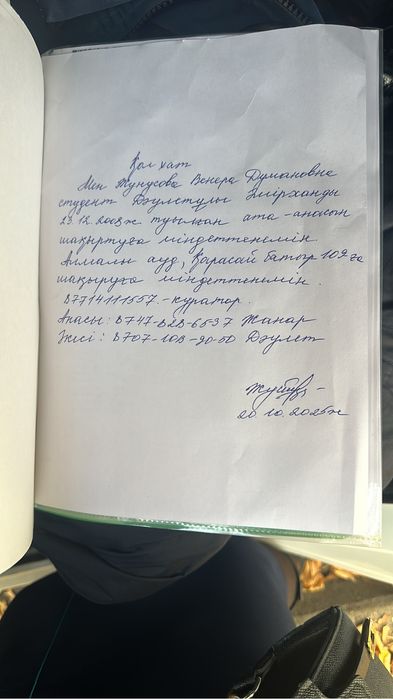 Қолхат
Мен Жунусова Венера Думановна
студент Дәулетұлы Әмірханды
23.12.2008ж туылған ата-анасын
шақыртуға міндеттенемін.
Алмалы ауд, Қарасай батыр 109 ға
шақыруға міндеттенемін.
87714111557.-куратор.
Анасы: 8747-828-6537 Жанар
Әкесі: 8707-108-90-50 Дәулет
20.10.2025ж